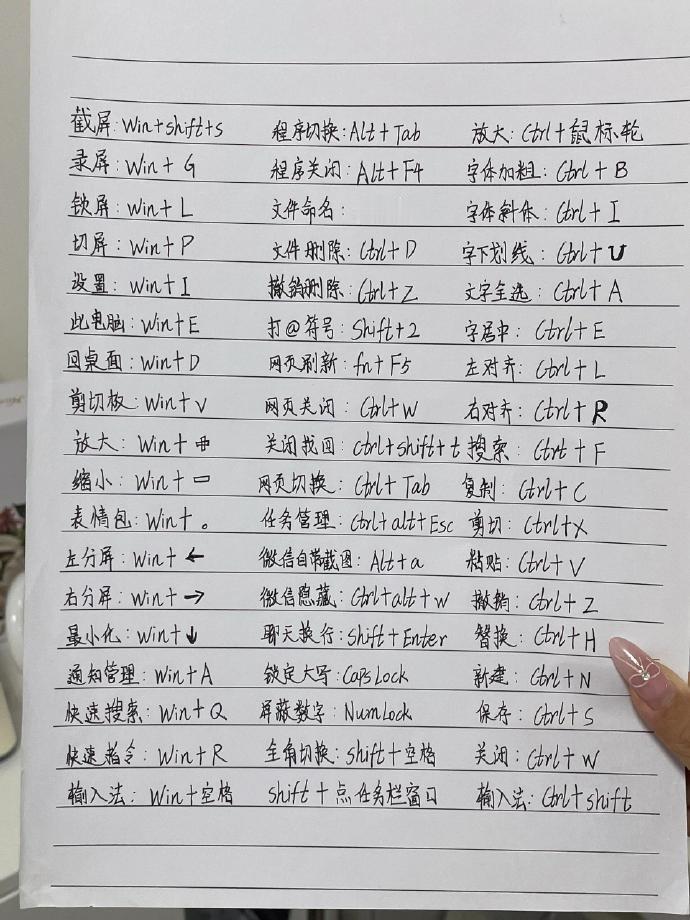 截屏: Win+shift+s 程序切换: Alt+Tab 放大: Ctrl+鼠标轮
录屏: Win+G 程序关闭: Alt+F4 字体加粗: Ctrl+B
锁屏: Win+L 文件命名: 字体斜体: Ctrl+I
切屏: Win+P 文件删除: Ctrl+D 字下划线: Ctrl+U
设置: Win+I 撤销删除: Ctrl+Z 文字全选: Ctrl+A
此电脑: Win+E 打@符号: Shift+2 字居中: Ctrl+E
回桌面: Win+D 网页刷新: fn+F5 左对齐: Ctrl+L
剪切板: Win+V 网页关闭: Ctrl+W 右对齐: Ctrl+R
放大: Win+ + 关闭找回: Ctrl+shift+t 搜索: Ctrl+F
缩小: Win+ - 网页切换: Ctrl+Tab 复制: Ctrl+C
表情包: Win+。 任务管理: Ctrl+alt+Esc 剪切: Ctrl+X
左分屏: Win+← 微信自带截图: Alt+a 粘贴: Ctrl+V
右分屏: Win+→ 微信隐藏: Ctrl+alt+w 撤销: Ctrl+Z
最小化: Win+↓ 聊天换行: Shift+Enter 替换: Ctrl+H
通知管理: Win+A 锁定大写: CapsLock 新建: Ctrl+N
快速搜索: Win+Q 屏蔽数字: NumLock 保存: Ctrl+S
快速指令: Win+R 全角切换: Shift+空格 关闭: Ctrl+W
输入法: Win+空格 Shift+点任务栏窗口 输入法: Ctrl+shift